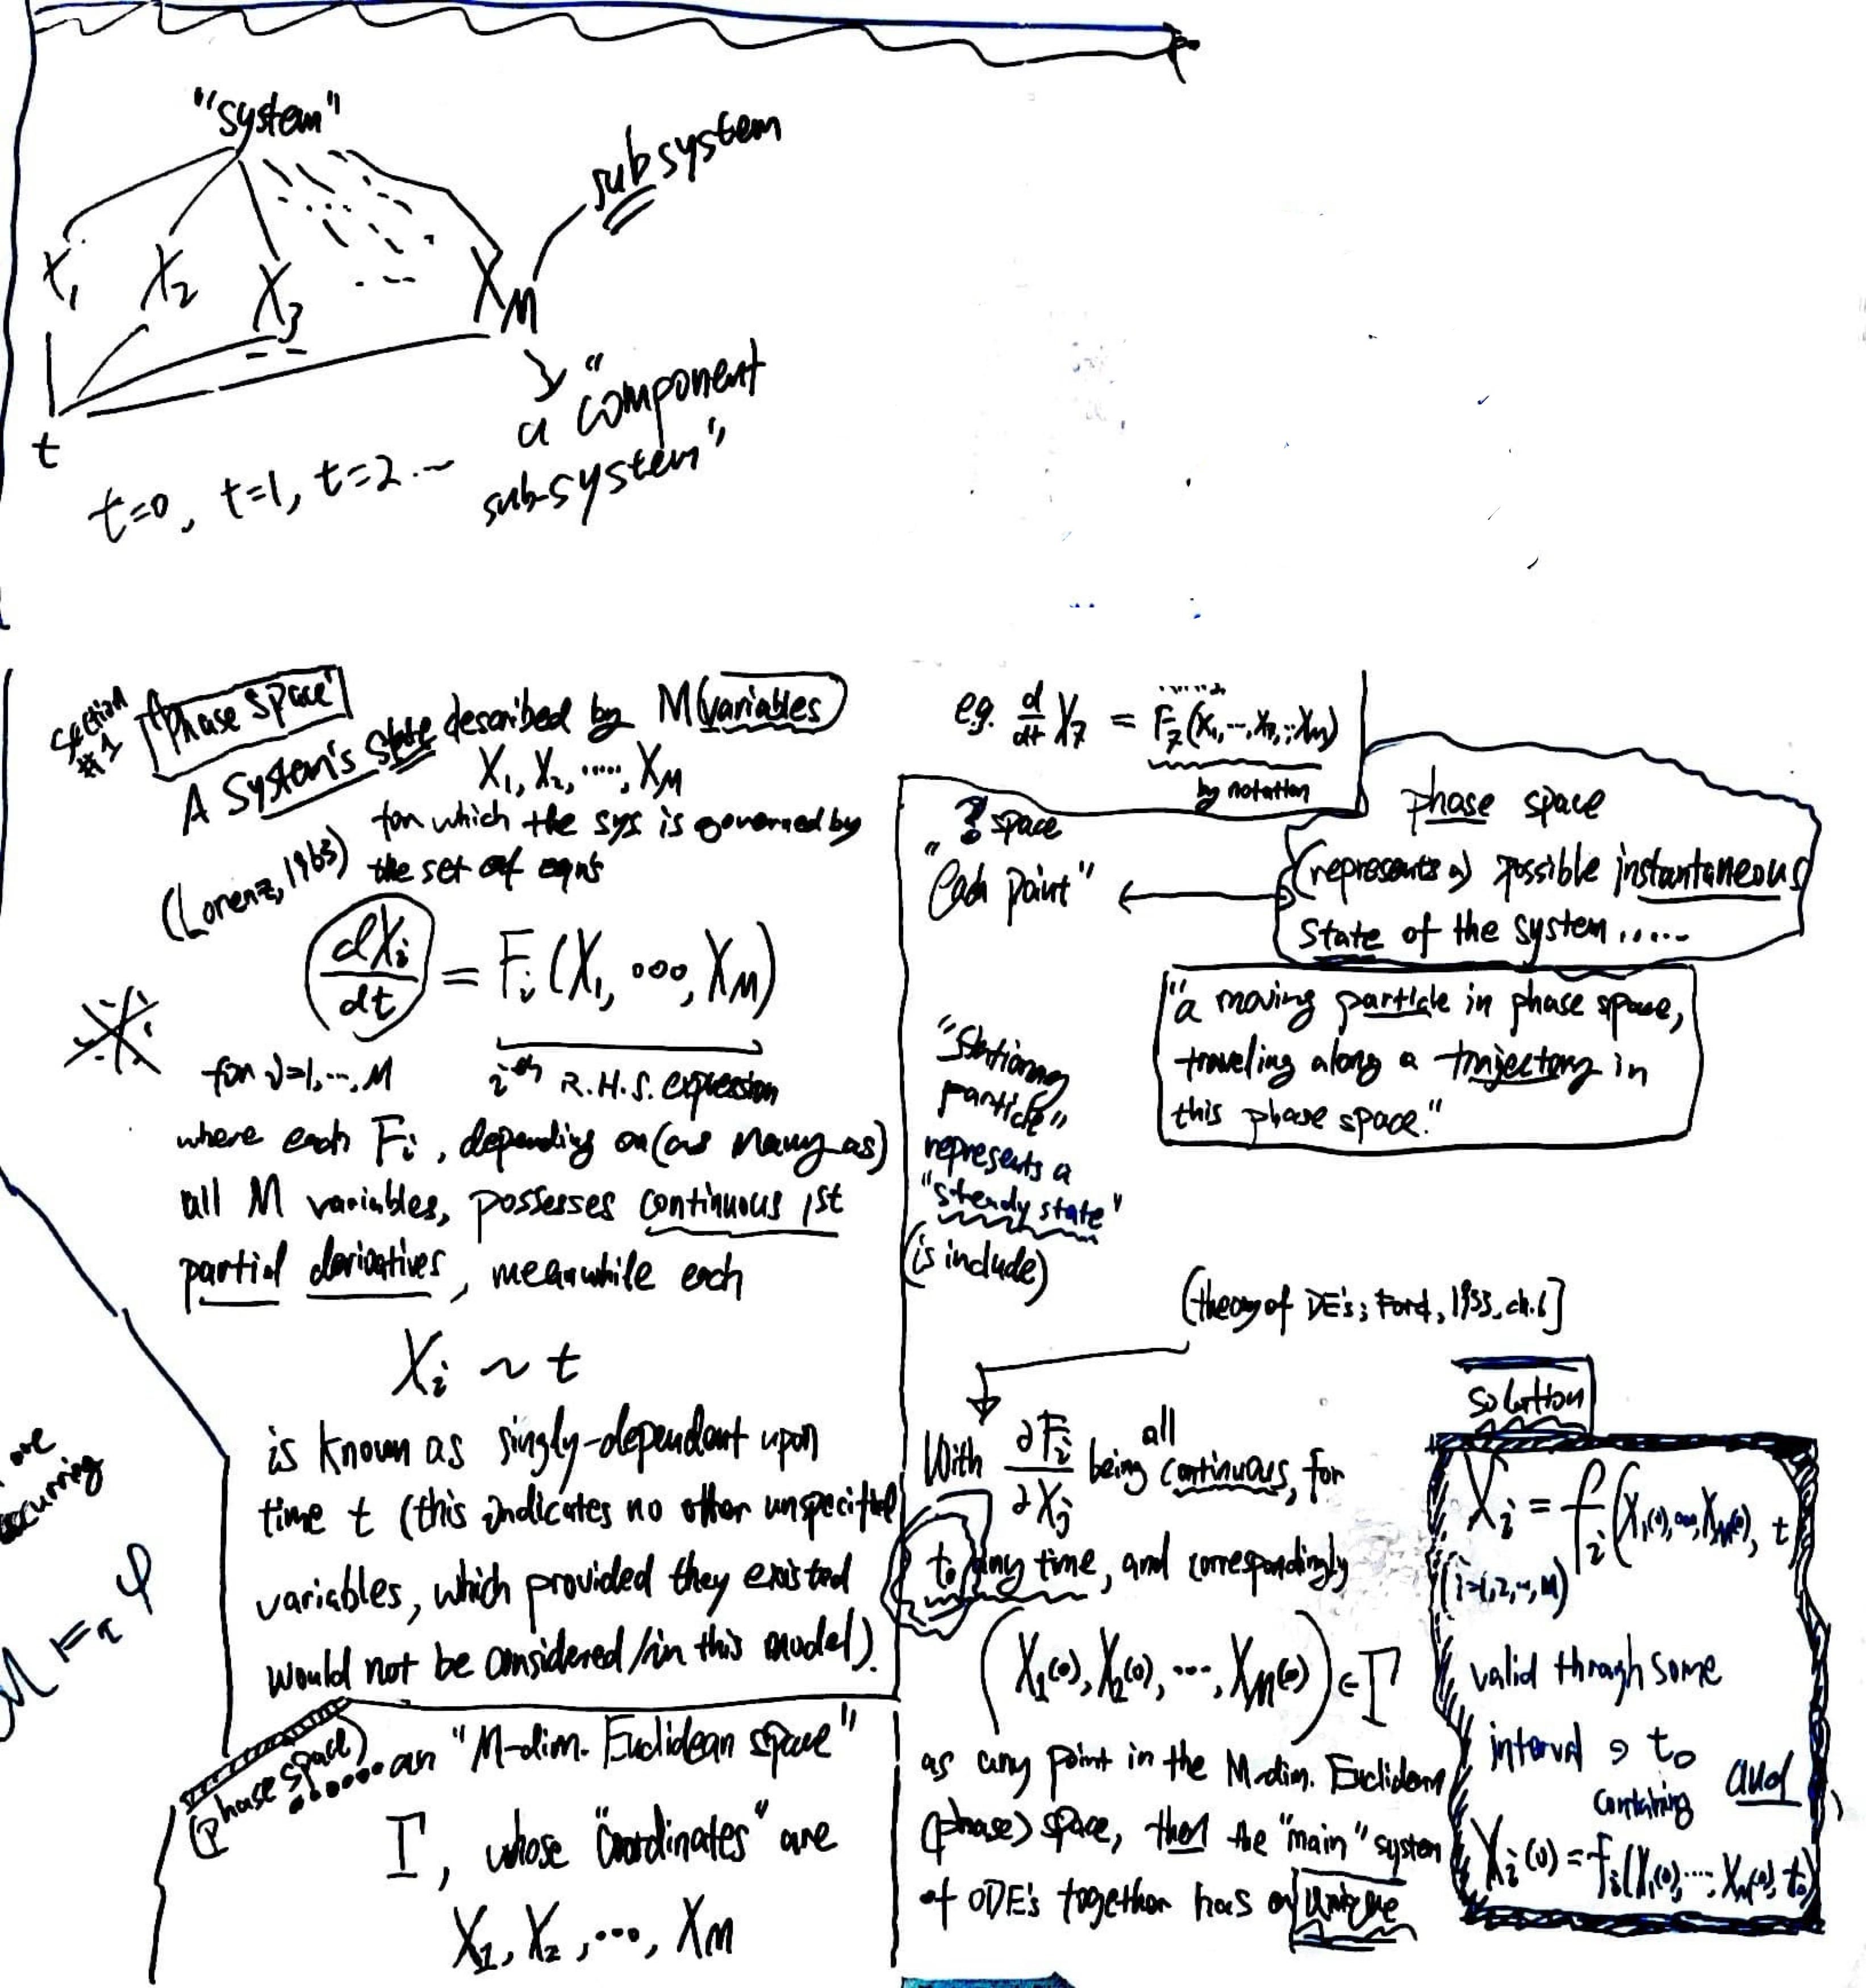 "system"
subsystem
X₁ X₂ X₃ ... X_M
t
a "component
sub-system"
t=0, t=1, t=2 ...
section #1 "Phase Space"
A System's state described by M variables
X₁, X₂, ....., X_M
for which the sys is governed by
(Lorenz, 1963) the set of eqn's
dXᵢ/dt = Fᵢ(X₁, ∘∘∘, X_M)
for i=1, ..., M
i-th R.H.S. expression
where each Fᵢ, depending on (as many as)
all M variables, possesses continuous 1st
partial derivatives, meanwhile each
Xᵢ ~ t
is known as singly-dependent upon
time t (this indicates no other unspecified
variables, which provided they existed
would not be considered/in this model).
(Phase space) ..... an "M-dim. Euclidean space"
Γ, whose "coordinates" are
X₁, X₂, ..., X_M
are
occurring
M ⊨ φ
e.g. d/dt X₇ = F₇(X₁, ..., X₇, .., X_M)
by notation
? space
"Each point"
phase space
(represents a) possible instantaneous
state of the system .....
"a moving particle in phase space,
traveling along a trajectory in
this phase space."
"Stationary
particle"
represents a
"steady state"
(is include)
(theory of DE's; Ford, 1933, ch.6]
With ∂Fᵢ/∂Xⱼ all being continuous, for
t₀ any time, and correspondingly
(X₁(0), X₂(0), ..., X_M(0)) ∈ Γ
as any point in the M-dim. Euclidean
(phase) space, then the "main" system
of ODE's together has a unique
solution
Xᵢ = fᵢ(X₁(0), ∘∘∘, X_M(0), t)
(i=1,2,..,M)
valid through some
interval ∋ t₀
containing and
Xᵢ(0) = fᵢ(X₁(0), ..., X_M(0), t₀)